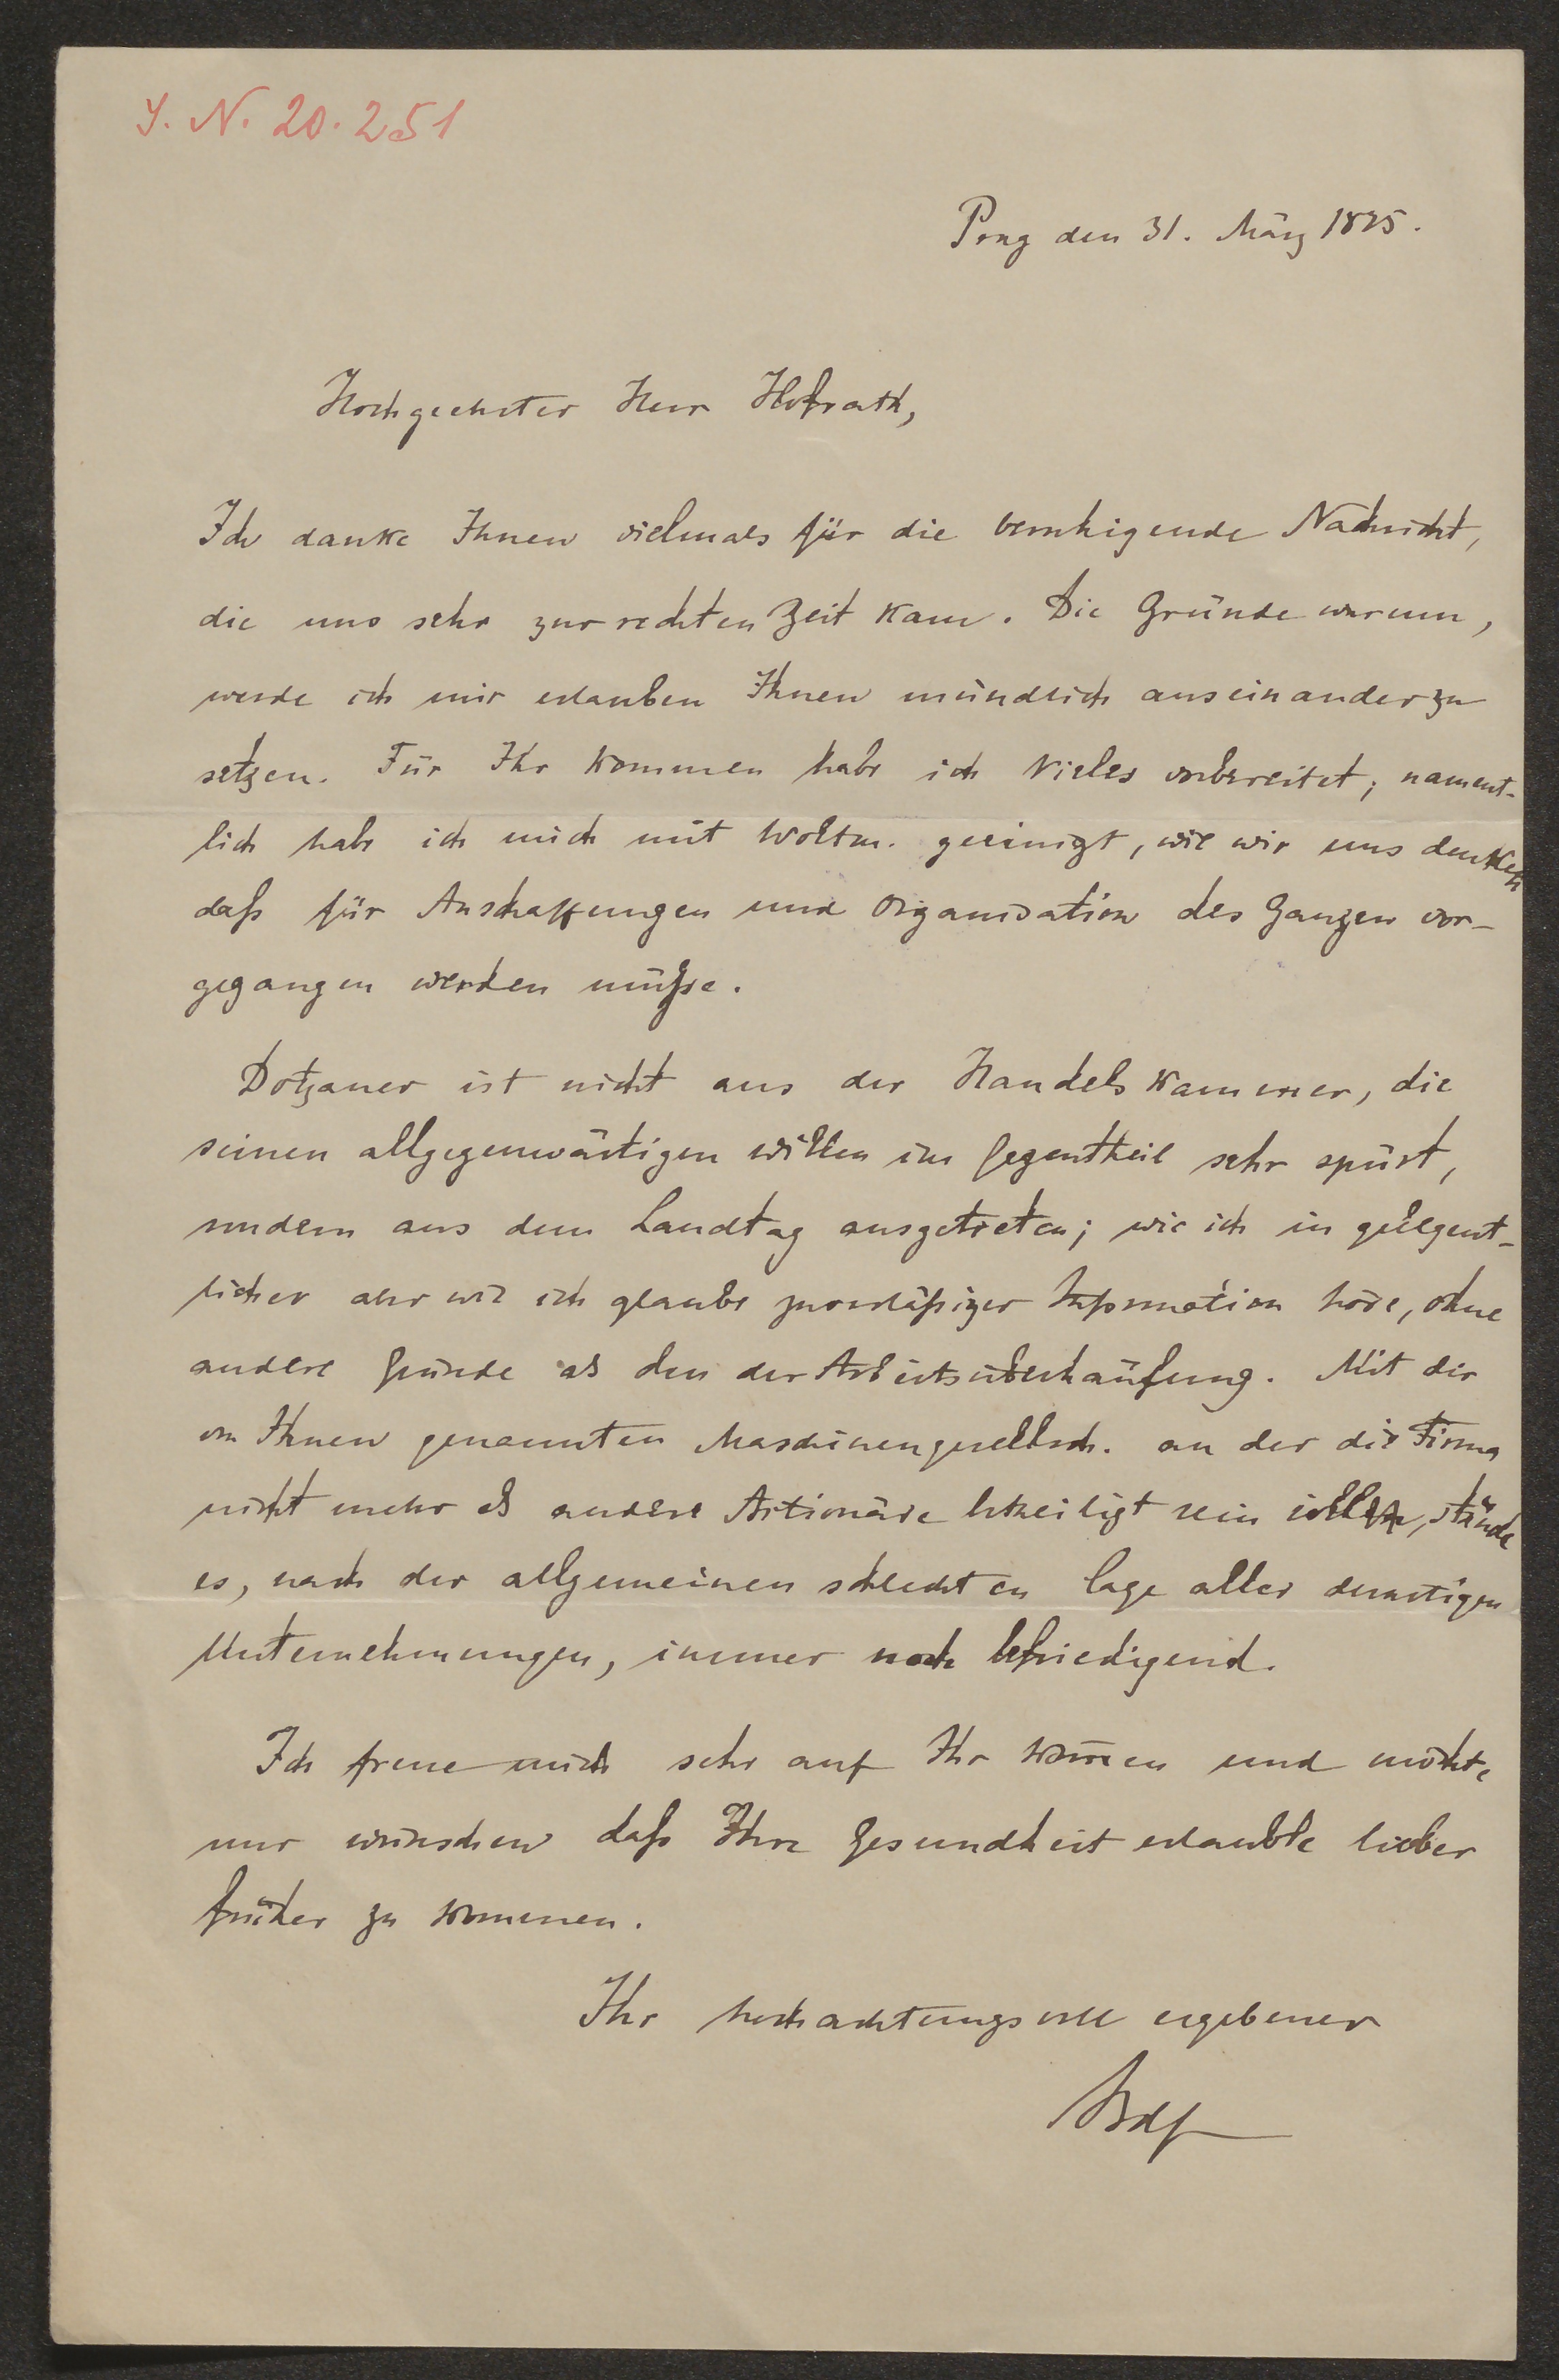 I. N. 20.251
Prag den 31. März 1875.
Hochgeehrter Herr Hofrath,
Ich danke Ihnen vielmals für die beruhigende Nachricht,
die uns sehr zur rechten Zeit kam. Die Gründe warum,
werde ich mir erlauben Ihnen mündlich auseinanderzu
setzen. Für Ihr Kommen habe ich Vieles vorbereitet; nament-
lich habe ich mich mit Woltm. geeinigt, wie wir uns denken
daß für Anschaffungen und Organisation des Ganzen vor-
gegangen werden müße.
Dotzauer ist nicht aus der Handelskammer, die
seinen allgegenwärtigen Willen im Gegentheil sehr spürt,
sondern aus dem Landtag ausgetreten; wie ich in gelegent-
licher aber wie ich glaube zuverläßiger Information höre, ohne
andere Gründe als den der Arbeitsüberhäufung. Mit der
von Ihnen genannten Maschinengesellsch. an der die Firma
nicht mehr als andere Actionäre betheiligt sein solle, stünde
es, nach der allgemeinen schlechten Lage aller derartigen
Unternehmungen, immer noch befriedigend.
Ich freue mich sehr auf Ihr Kom̅en und möchte
nur wünschen daß Ihre Gesundheit erlaubte lieber
früher zu kommen.
Ihr hochachtungsvoll ergebener